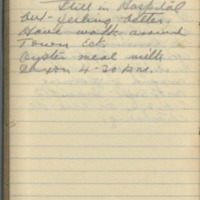 Still in Hospital
but feeling better
Have walk around
Town Ect.
Oyster meal with
4-30 P.M.